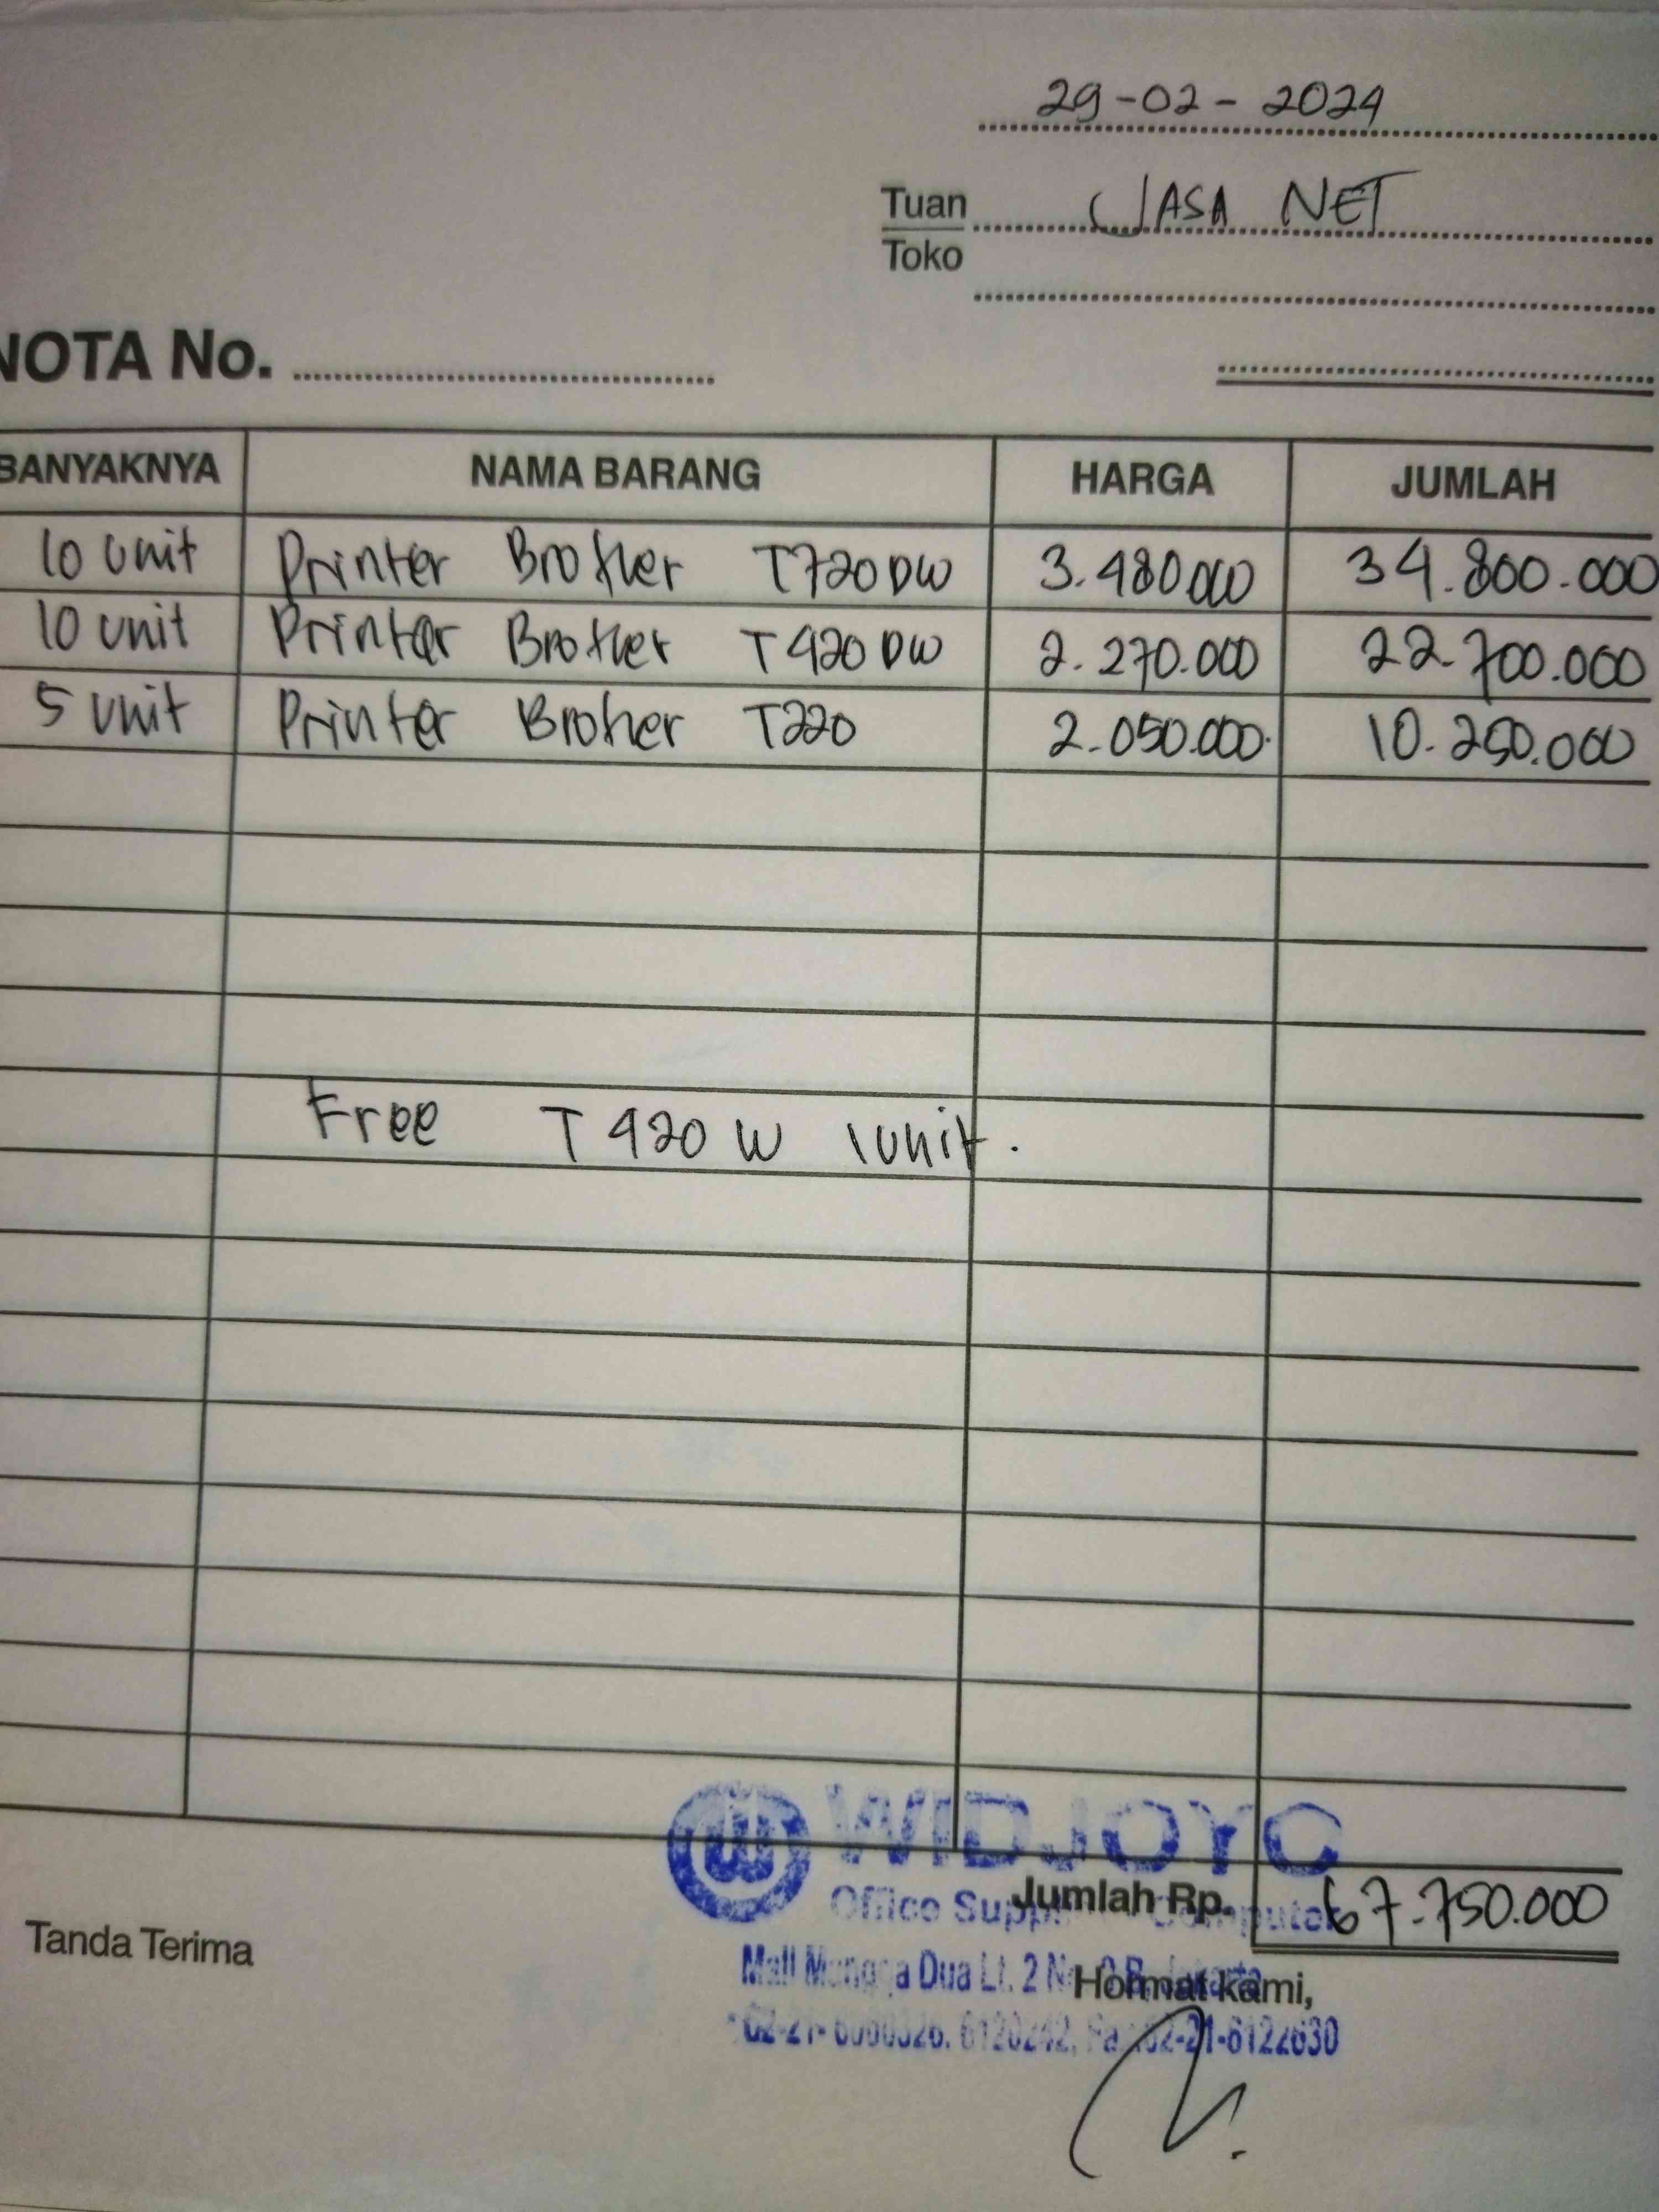 29-02-2024
Tuan JASA NET
Toko
NOTA No.
BANYAKNYA NAMA BARANG HARGA JUMLAH
10 unit Printer Brother T720DW 3.480.000 34.800.000
10 unit Printer Brother T420DW 2.270.000 22.700.000
5 unit Printer Broher T220 2.050.000 10.250.000
Free T420W 1unit.
WIDJOYO
Office Computer
Jumlah Rp. 67.750.000
Tanda Terima
Mall Mangga Dua Lt. 2
Hormat kami,
02-21-6122630